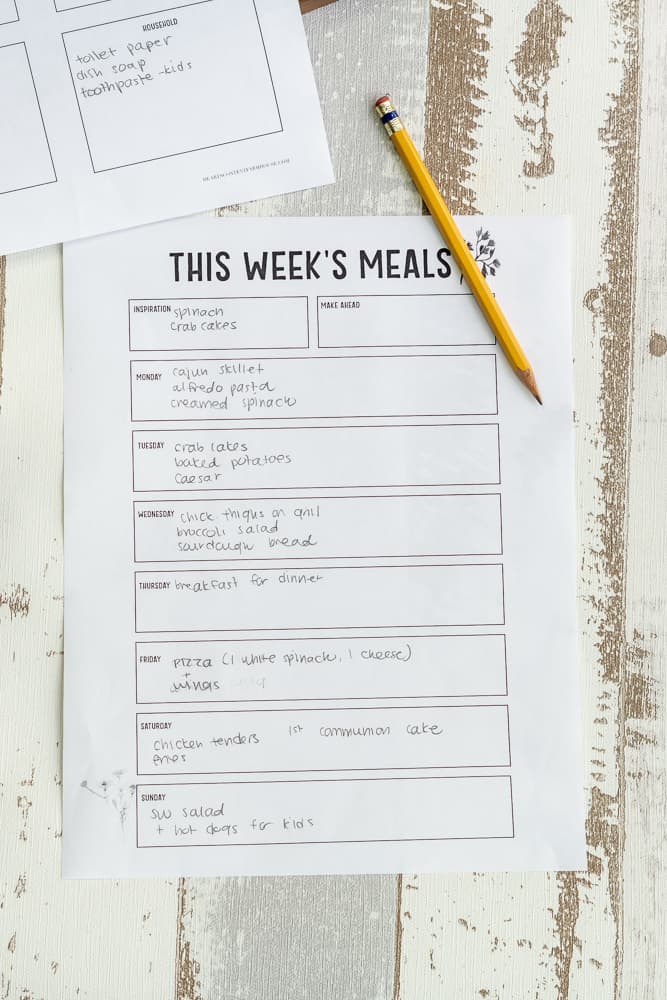 HOUSEHOLD
toilet paper
dish soap
toothpaste - kids
HEARTSCONTENTFARMHOUSE.COM
THIS WEEK'S MEALS
INSPIRATION spinach
crab cakes
MAKE AHEAD
MONDAY cajun skillet
alfredo pasta
creamed spinach
TUESDAY crab cakes
baked potatoes
caesar
WEDNESDAY chick thighs on grill
broccoli salad
sourdough bread
THURSDAY breakfast for dinner
FRIDAY pizza (1 white spinach, 1 cheese)
+
wings
SATURDAY
chicken tenders 1st communion cake
fries
SUNDAY
sw salad
+ hot dogs for kids